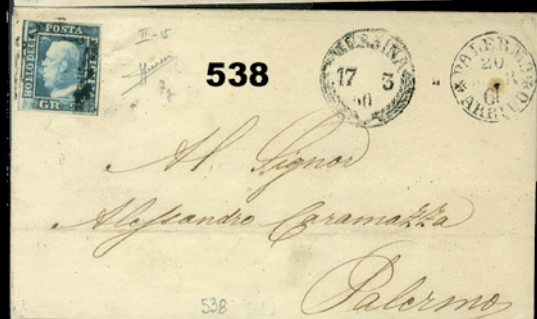 POSTA
BOLLO DELLA
GR
II-15
538
MESSINA
17 3
60
PALERMO
20
ARRIVO
Al Signor
Alessandro Caramazza
Palermo
538